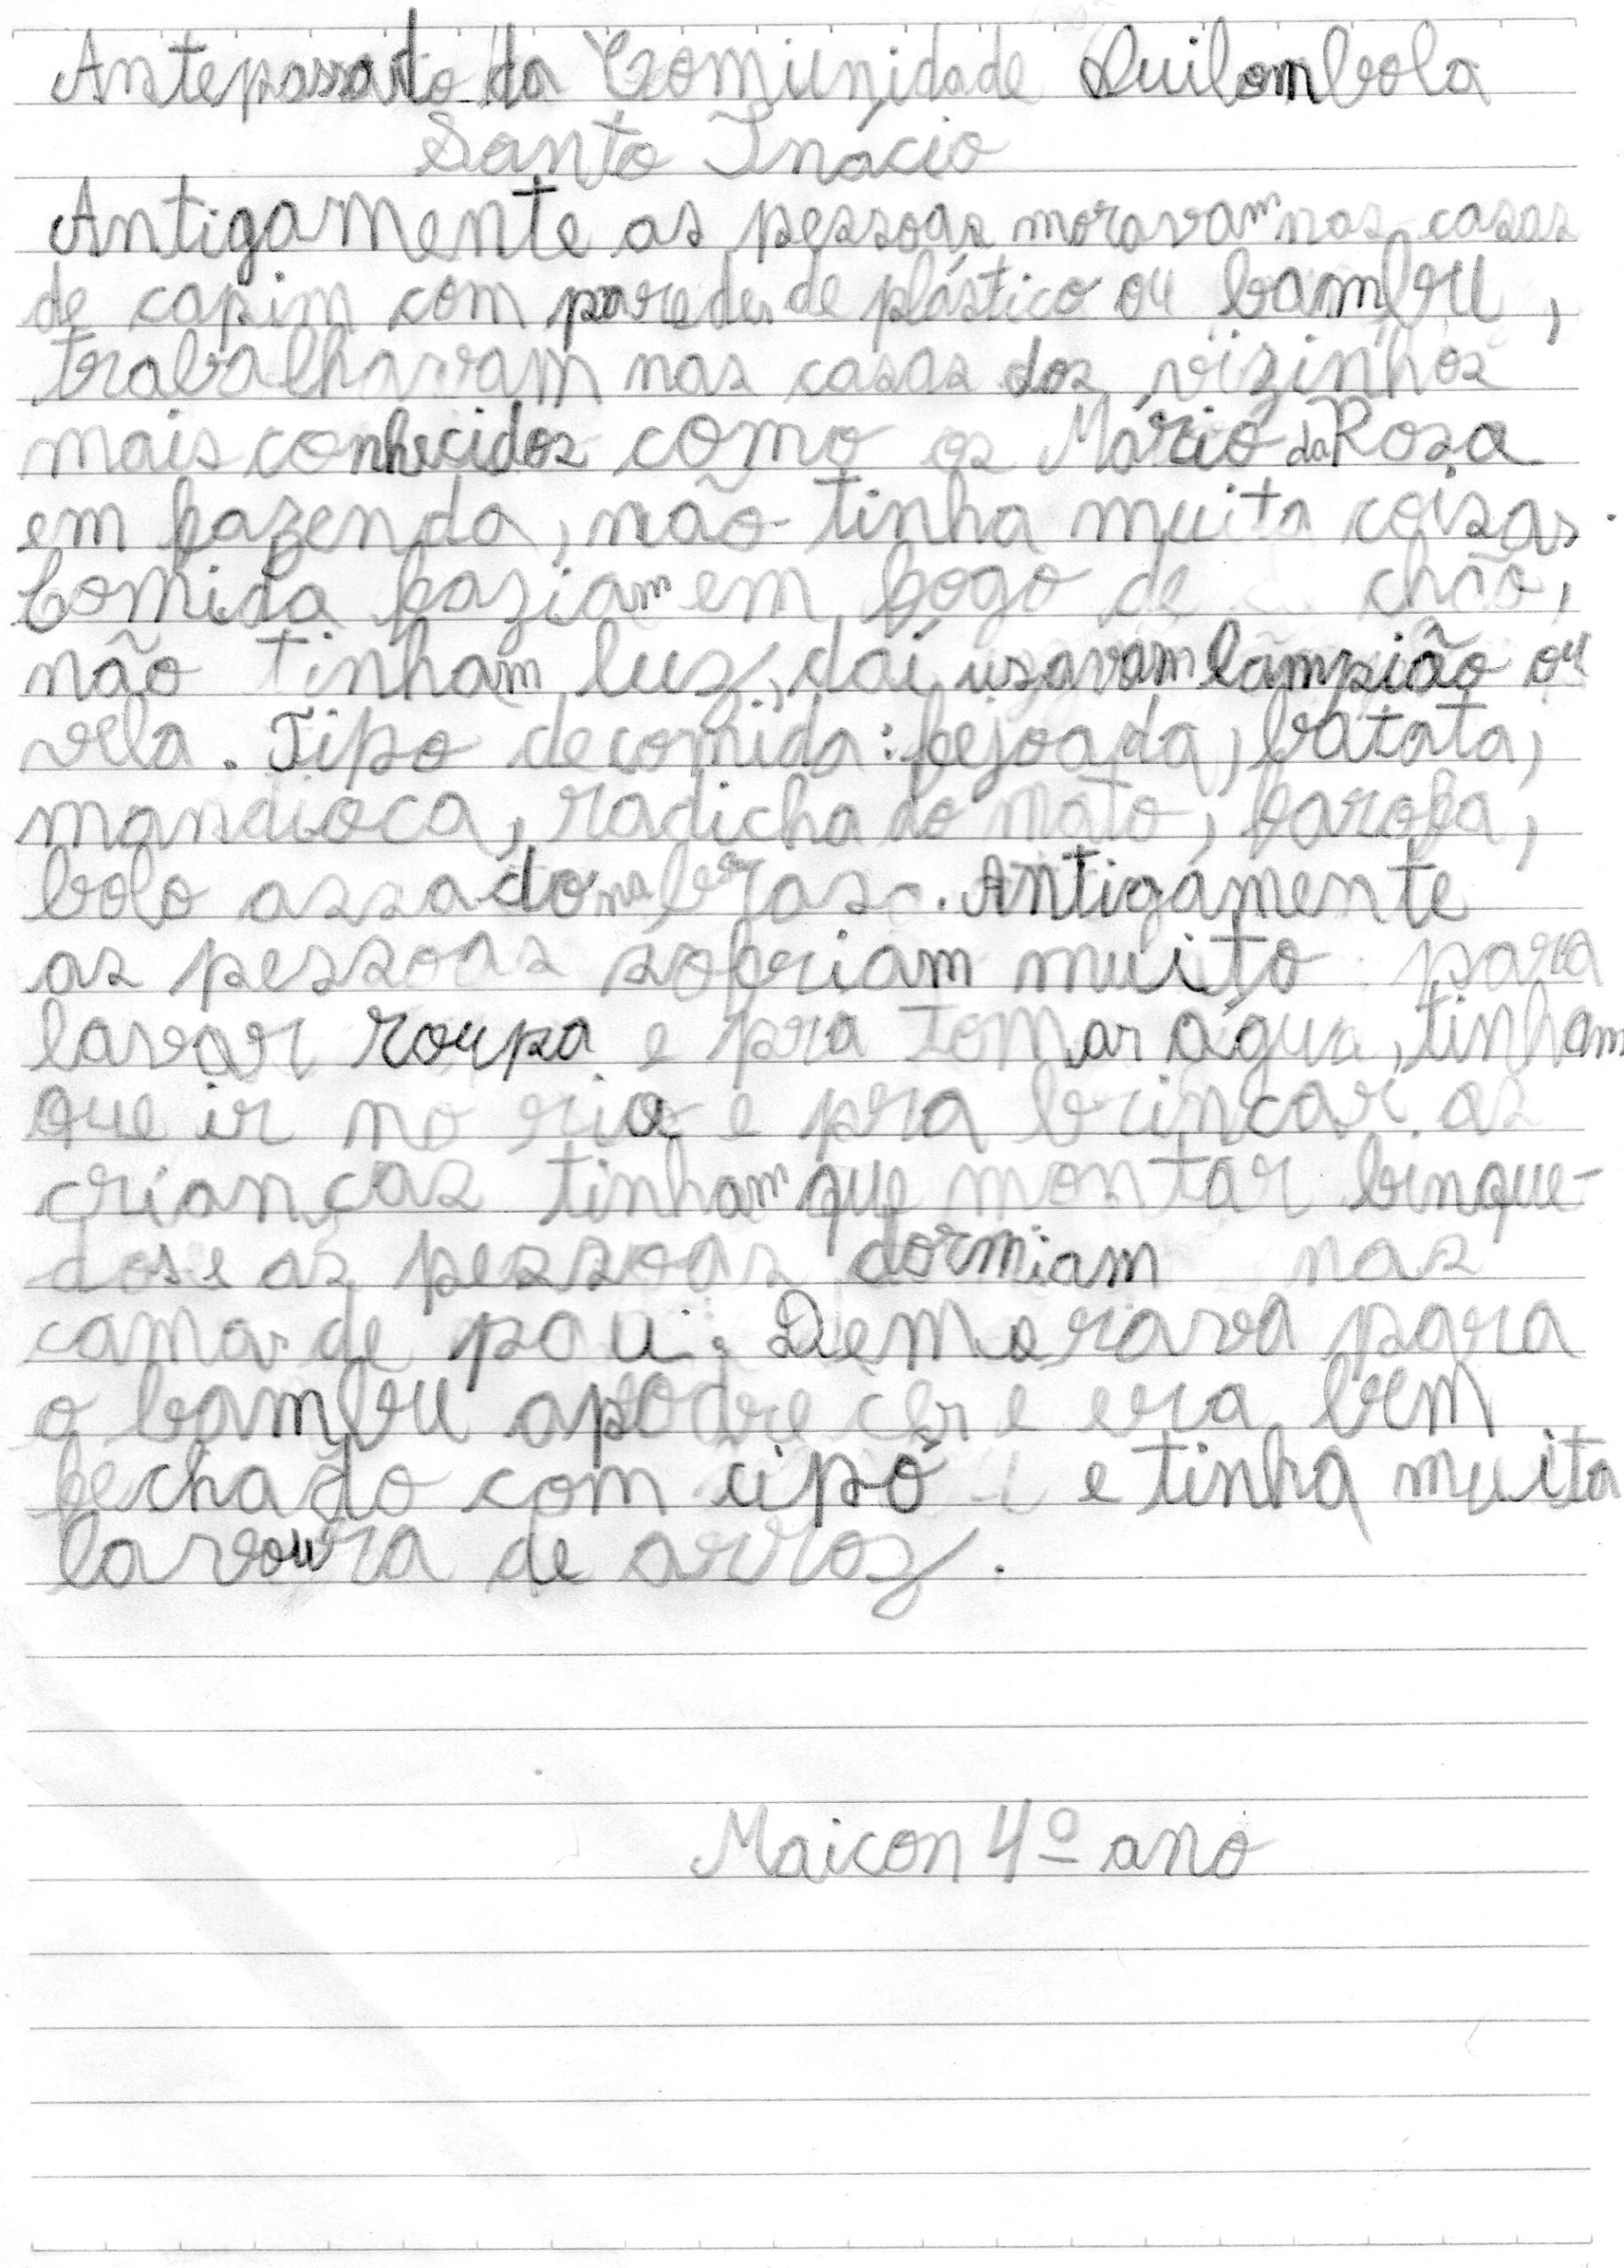 Antepassado da Comunidade Quilombola
Santo Inácio
Antigamente as pessoas moravam nas casas
de capim com paredes de plástico ou bambu,
trabalhavam nas casas dos vizinhos
mais conhecidos como os Mário da Rosa
em fazenda, não tinha muita coisas.
Comida faziam em fogo de chão,
não tinham luz, daí usavam lampião ou
vela. Tipo de comida: fejoada, batata,
mandioca, radicha do mato, farofa,
bolo assado na brasa. Antigamente
as pessoas sofriam muito para
lavar roupa e pra tomar água, tinham
que ir no rio e pra brincar as
crianças tinham que montar binque-
dos e as pessoas dormiam nas
camas de pau. Demorava para
o bambu apodrecer e era bem
fechado com cipó e tinha muita
lavoura de arroz.
Maicon 4º ano